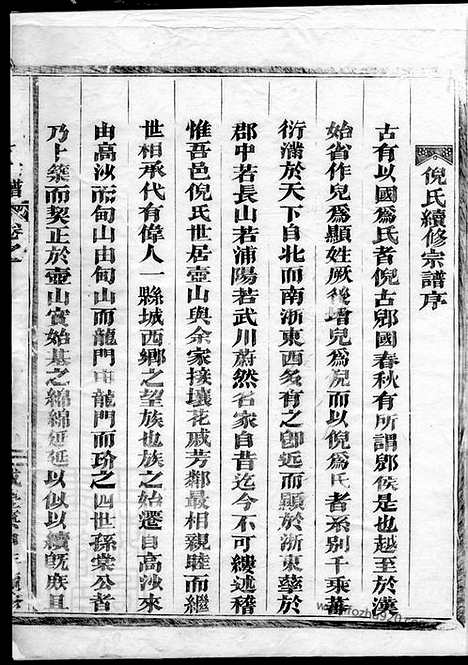 倪氏續修宗譜序
古有以國爲氏者倪古郳國春秋有所謂郳侯是也越至於漢
始省作兒爲顯姓厥後增兒爲倪而以倪爲氏者系別千乘蕃
衍滿於天下自北而南浙東西多有之卽近而顯於浙東蘖於
郡中若長山若浦陽若武川蔚然名家自昔迄今不可縷述稽
惟吾邑倪氏世居壺山與余家接壤花戚芳鄰最相親睦而繼
世相承代有偉人一縣城西鄉之望族也族之始遷自高沙來
由高沙而甸山由甸山而龍門由龍門而玠之四世孫棠公者
乃卜築而契正於壺山實始基之綿綿延延以似以續旣庶且
譜
卷之